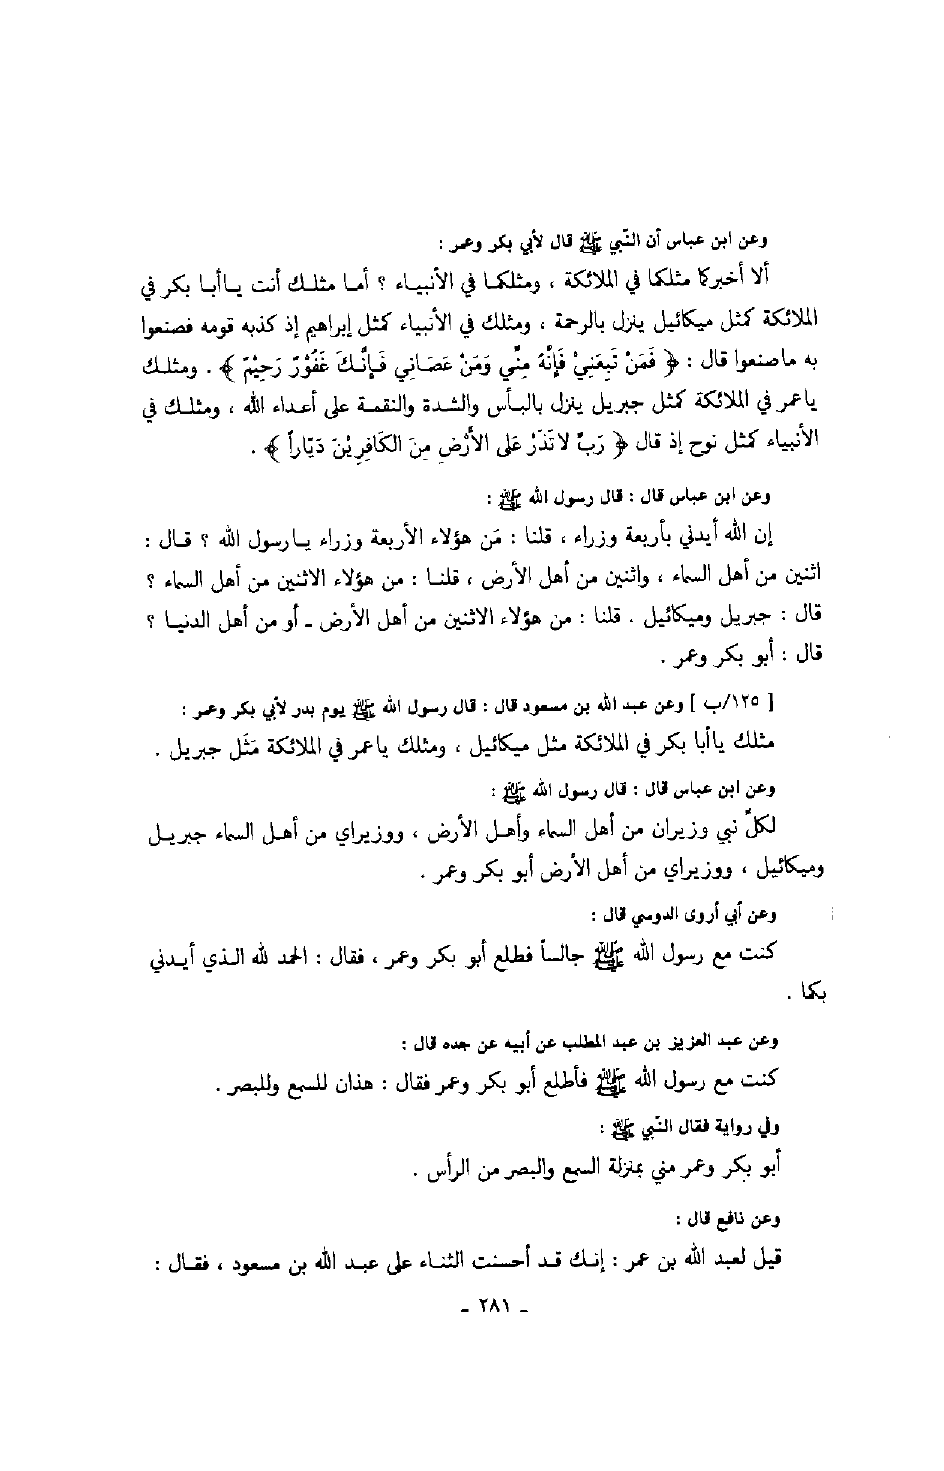 وعن ابن عباس أن النّبي ﷺ قال لأبي بكر وعمر :
ألا أخبركما مثلكما في الملائكة ، ومثلكما في الأنبياء ؟ أما مثلك أنت ياأبا بكر في
الملائكة كمثل ميكائيل ينزل بالرحمة ، ومثلك في الأنبياء كمثل إبراهيم إذ كذبه قومه فصنعوا
به ماصنعوا قال : ﴿ فَمَنْ تَبِعَنِيْ فَإِنَّهُ مِنِّي وَمَنْ عَصَانِي فَإِنَّكَ غَفُوْرٌ رَحِيْمٌ ﴾ . ومثلك
ياعمر في الملائكة كمثل جبريل ينزل بالبأس والشدة والنقمة على أعداء الله ، ومثلك في
الأنبياء كمثل نوح إذ قال ﴿ رَبِّ لاتَذَرْ عَلى الأَرْضِ مِنَ الكَافِرِيْنَ دَيّاراً ﴾ .
وعن ابن عباس قال : قال رسول الله ﷺ :
إن الله أيدني بأربعة وزراء ، قلنا : مَن هؤلاء الأربعة وزراء يارسول الله ؟ قال :
اثنين من أهل السماء ، واثنين من أهل الأرض ، قلنا : من هؤلاء الاثنين من أهل السماء ؟
قال : جبريل وميكائيل . قلنا : من هؤلاء الاثنين من أهل الأرض ـ أو من أهل الدنيا ؟
قال : أبو بكر وعمر .
[ ١٢٥/ب ] وعن عبد الله بن مسعود قال : قال رسول الله ﷺ يوم بدر لأبي بكر وعمر :
مثلك ياأبا بكر في الملائكة مثل ميكائيل ، ومثلك ياعمر في الملائكة مَثَل جبريل .
وعن ابن عباس قال : قال رسول الله ﷺ :
لكلّ نبي وزيران من أهل السماء وأهل الأرض ، ووزيراي من أهل السماء جبريل
وميكائيل ، ووزيراي من أهل الأرض أبو بكر وعمر .
وعن أبي أروى الدوسي قال :
كنت مع رسول الله ﷺ جالساً فطلع أبو بكر وعمر ، فقال : الحمد لله الذي أيدني
بكما .
وعن عبد العزيز بن عبد المطلب عن أبيه عن جده قال :
كنت مع رسول الله ﷺ فأطلع أبو بكر وعمر فقال : هذان للسمع وللبصر .
وفي رواية فقال النّبي ﷺ :
أبو بكر وعمر مني بمنزلة السمع والبصر من الرأس .
وعن نافع قال :
قيل لعبد الله بن عمر : إنك قد أحسنت الثناء على عبد الله بن مسعود ، فقال :
ـ ٢٨١ ـ